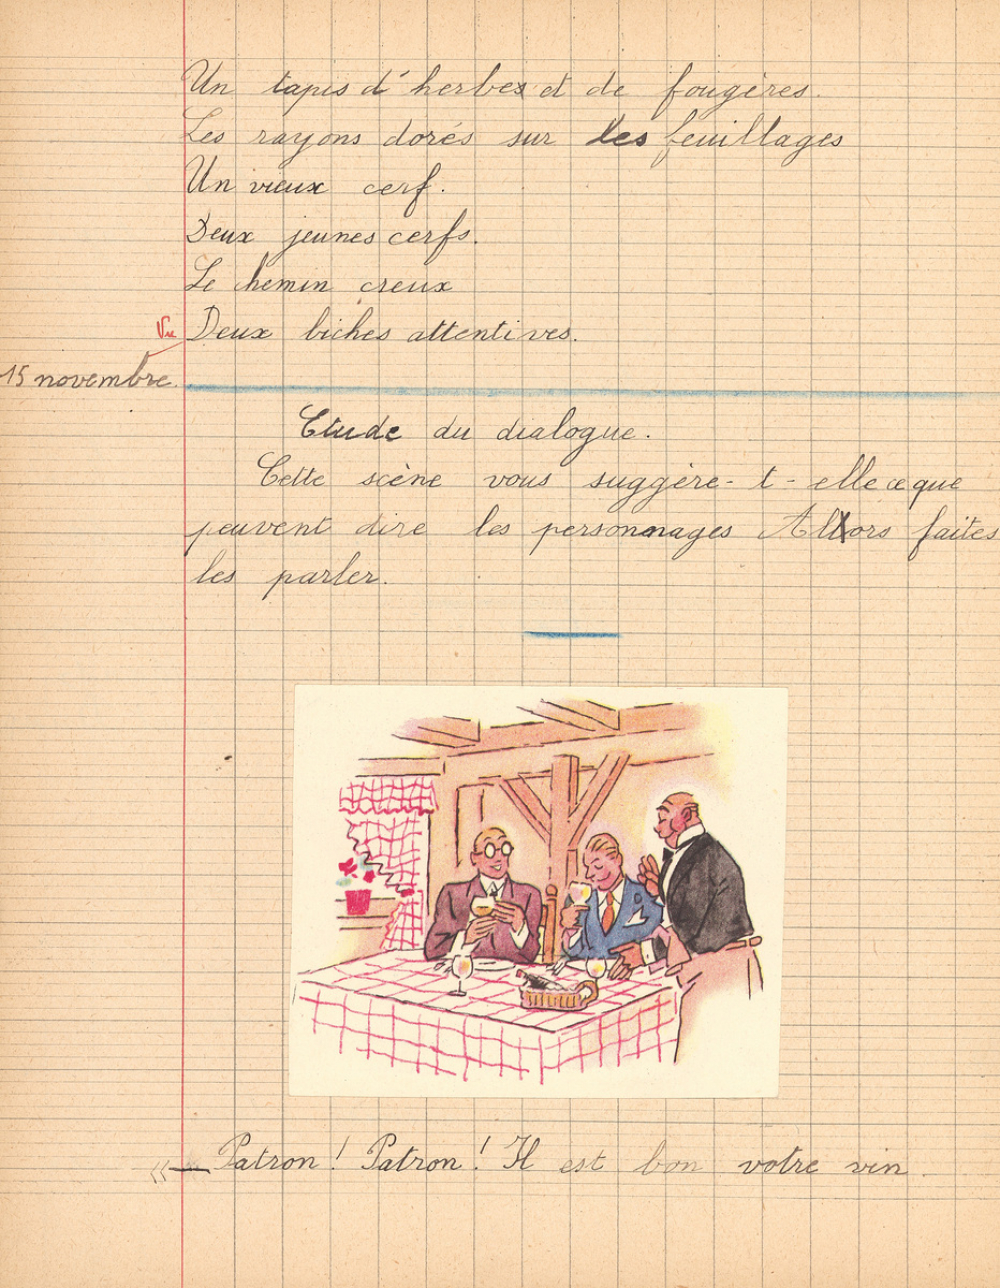 Un tapis d'herbes et de fougères.
Les rayons dorés sur les feuillages
Un vieux cerf.
Deux jeunes cerfs.
Le chemin creux
Vu Deux biches attentives.
15 novembre.
Etude du dialogue.
Cette scène vous suggère-t-elle ce que
peuvent dire les personnages Alors faites
les parler.
«— Patron! Patron! Il est bon votre vin.